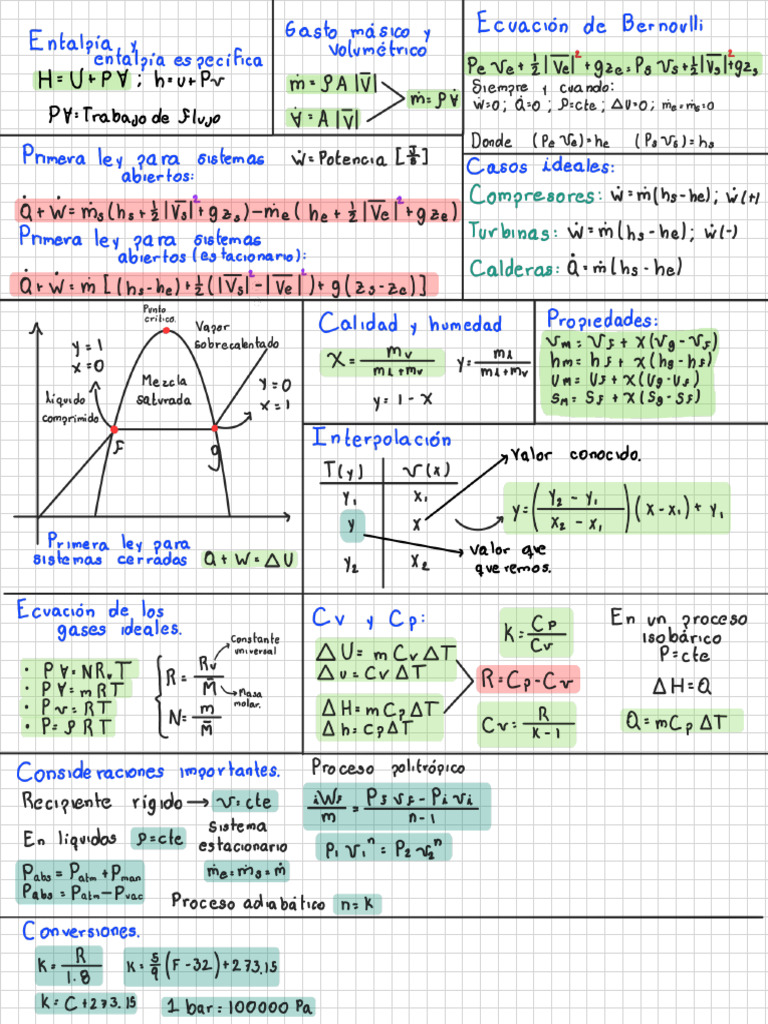 Entalpía y
entalpía específica
H = U + P∀ ; h = u + Pv
P∀ = Trabajo de flujo
Gasto másico y
volumétrico
ṁ = ρ A |V̅|
∀̇ = A |V̅|
ṁ = ρ ∀̇
Ecuación de Bernoulli
Pe ve + ½|V̅e|² + gze = Ps vs + ½|V̅s|² + gzs
Siempre y cuando:
ẇ=0 ; Q̇=0 ; ρ=cte ; ΔU=0 ; ṁe=ṁs=0
Donde (Pe ve) = he (Ps vs) = hs
Primera ley para sistemas
abiertos:
Ẇ = Potencia [J/s]
Q̇ + Ẇ = ṁs (hs + ½|V̅s|² + gzs) − ṁe (he + ½|V̅e|² + gze)
Primera ley para sistemas
abiertos (estacionario):
Q̇ + Ẇ = ṁ [(hs − he) + ½(|V̅s|² − |V̅e|²) + g(zs − ze)]
Casos ideales:
Compresores: Ẇ = ṁ(hs − he) ; ẇ(+)
Turbinas: Ẇ = ṁ(hs − he) ; ẇ(−)
Calderas: Q̇ = ṁ(hs − he)
Punto
crítico.
Vapor
sobrecalentado
y = 1
x = 0
Mezcla
saturada
y = 0
x = 1
líquido
comprimido
f
g
Primera ley para
sistemas cerrados Q + W = ΔU
Calidad y humedad
x = mv / (ml + mv)
y = ml / (ml + mv)
y = 1 − x
Propiedades:
vm = vf + x(vg − vf)
hm = hf + x(hg − hf)
um = uf + x(ug − uf)
sm = sf + x(sg − sf)
Interpolación
T(y) v(x)
y1 x1
y x
y2 x2
Valor conocido.
y = ((y2 − y1) / (x2 − x1)) (x − x1) + y1
valor que
queremos.
Ecuación de los
gases ideales.
• P∀ = NRuT
• P∀ = mRT
• Pv = RT
• P = ρRT
R = Ru / M̅
N = m / M̅
Constante
universal
Masa
molar.
Cv y Cp:
ΔU = m Cv ΔT
Δu = Cv ΔT
ΔH = m Cp ΔT
Δh = Cp ΔT
k = Cp / Cv
R = Cp − Cv
Cv = R / (k−1)
En un proceso
isobárico
P = cte
ΔH = Q
Q = m Cp ΔT
Consideraciones importantes.
Recipiente rígido → v = cte
En líquidos ρ = cte
Sistema
estacionario
ṁe = ṁs = ṁ
Pabs = Patm + Pman
Pabs = Patm − Pvac
Proceso adiabático n = k
Proceso politrópico
iWf / m = (Pf vf − Pi vi) / (n−1)
P1 v1ⁿ = P2 v2ⁿ
Conversiones.
K = R / 1.8
K = 5/9 (F − 32) + 273.15
K = C + 273.15
1 bar = 100000 Pa